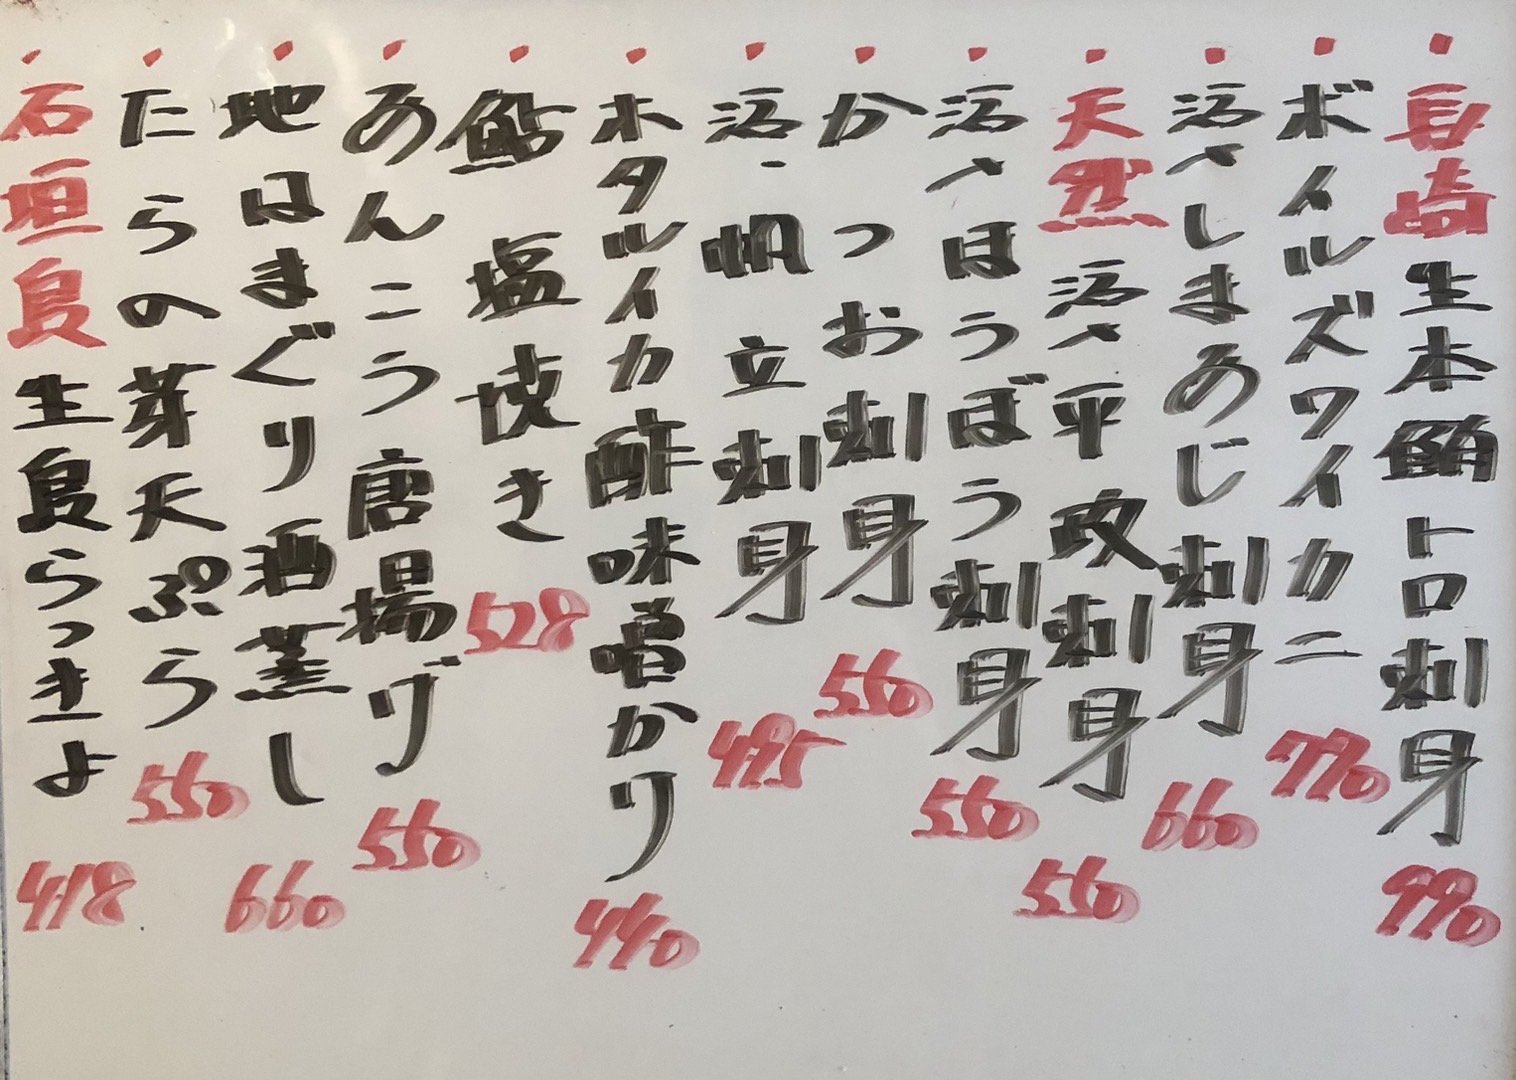 ・長崎生本鮪トロ刺身 990
・ボイルズワイカニ 770
・活〆しまあじ刺身 660
・天然活〆平政刺身 550
・活〆ほうぼう刺身 550
・かつお刺身 550
・活帆立刺身 495
・ホタルイカ酢味噌かけ 440
・鮎塩焼き 528
・あんこう唐揚げ 550
・地はまぐり酒蒸し 660
・たらの芽天ぷら 550
・石垣島生島らっきょ 418